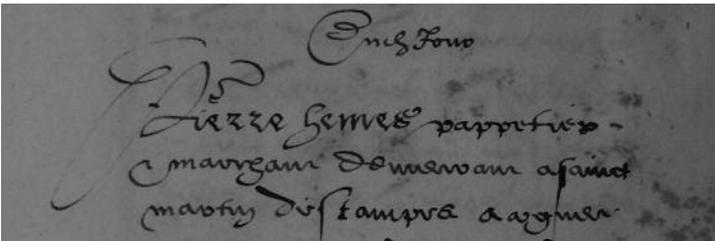 Dudit Jour
Pierre hemes pappetier
marchant demeurant a sainct
martin d'estampes aagé